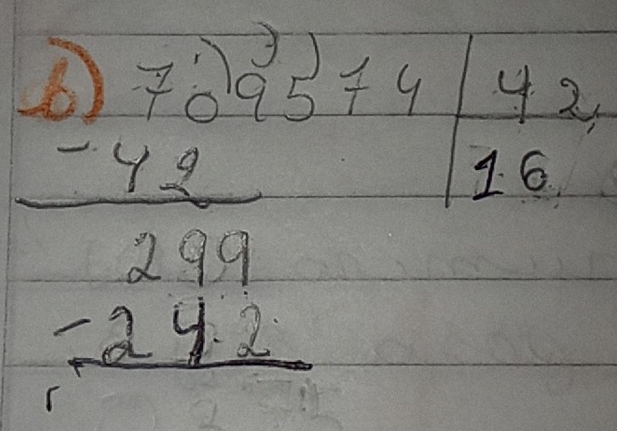 b) 709574 42
- 42 16
299
- 242